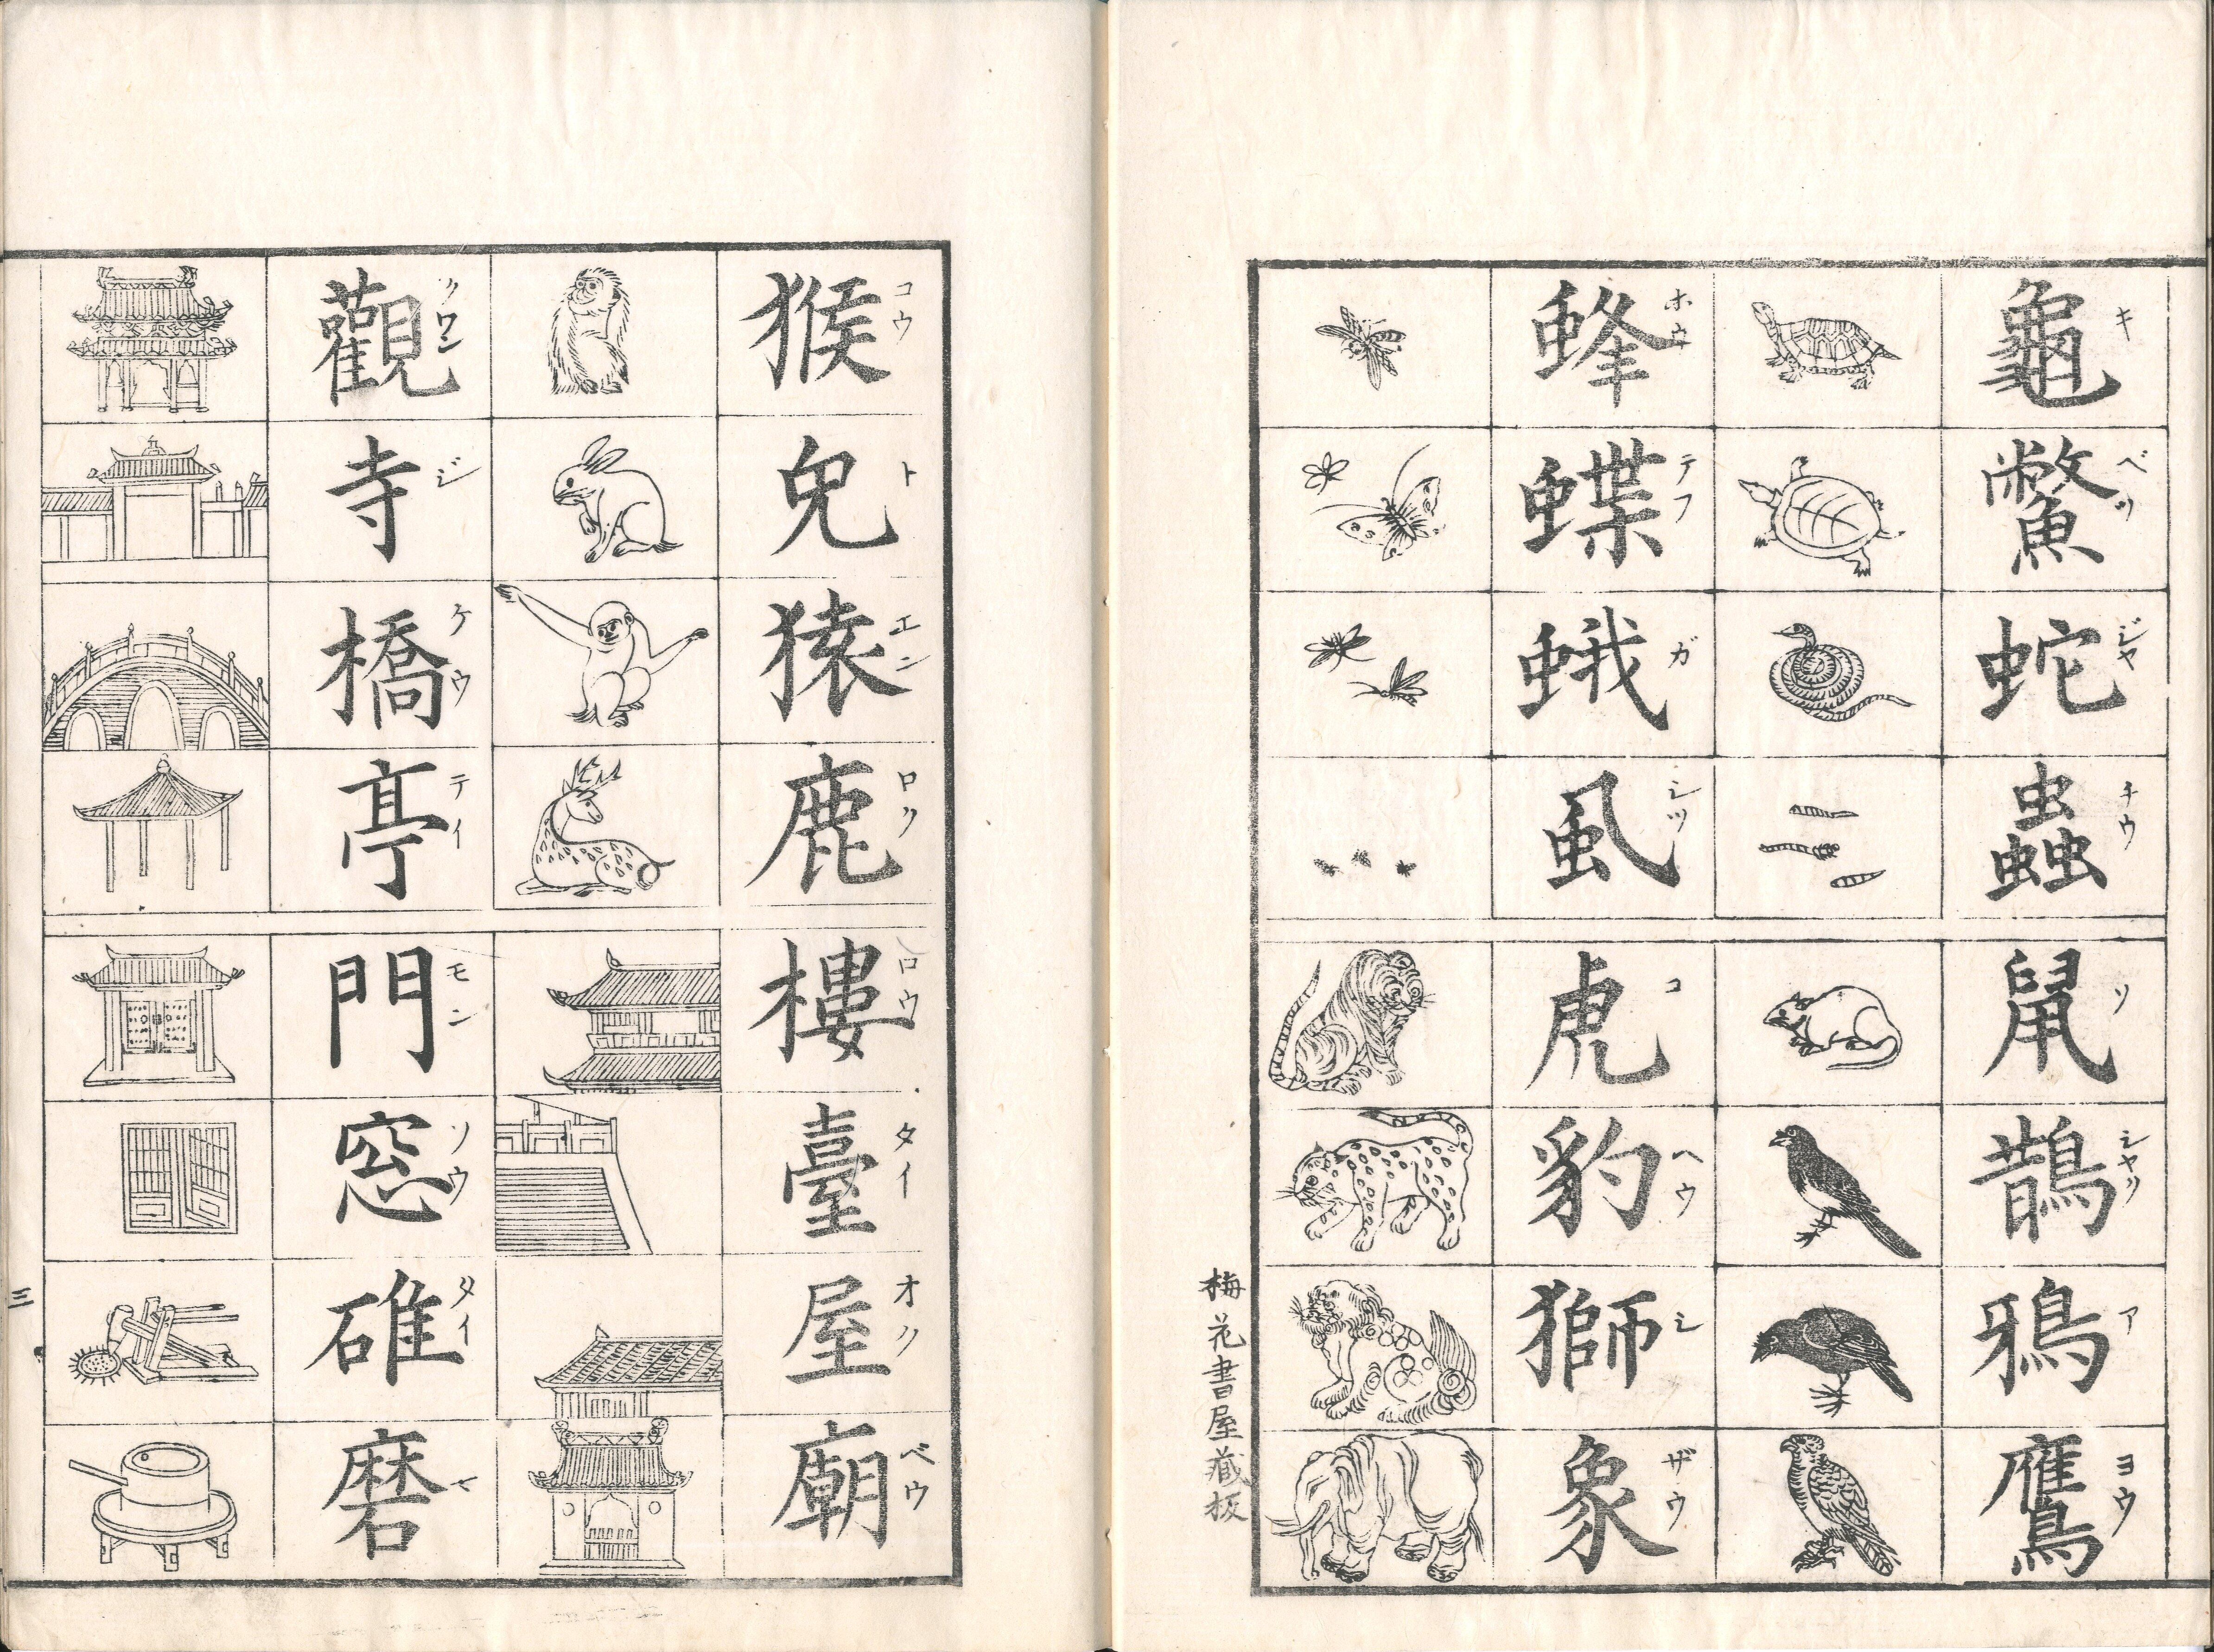 龜 キ
鱉 ベツ
蛇 ジヤ
蟲 キウ
鼠 ソ
鵲 シヤク
鴉 ア
鷹 ヨウ
蜂 ホウ
蝶 テフ
蛾 ガ
虱 シツ
虎 コ
豹 ヘウ
獅 シ
象 ザウ
梅花書屋藏板
猴 コウ
兔 ト
猿 エン
鹿 ロク
樓 ロウ
臺 タイ
屋 オク
廟 ベウ
觀 クワン
寺 ジ
橋 ケウ
亭 テイ
門 モン
窓 ソウ
碓 タイ
磨 マ
三